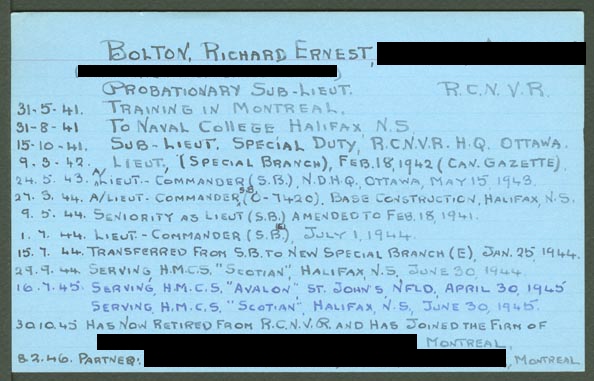 BOLTON, RICHARD ERNEST,
PROBATIONARY SUB-LIEUT. R.C.N.V.R.
31-5-41. TRAINING IN MONTREAL.
31-8-41 TO NAVAL COLLEGE HALIFAX, N.S.
15-10-41. SUB-LIEUT. SPECIAL DUTY, R.C.N.V.R. H.Q. OTTAWA.
9.3.42. LIEUT., (SPECIAL BRANCH), FEB.18,1942 (CAN. GAZETTE).
24.5.43. A/LIEUT.-COMMANDER (S.B.) N.D.HQ, OTTAWA, MAY 15, 1943.
27.3.44. A/LIEUT-COMMANDER, S.B. (O-7420), BASE CONSTRUCTION, HALIFAX, N.S.
9.5.44. SENIORITY AS LIEUT (S.B.) AMENDED TO FEB.18,1941.
1.7.44. LIEUT-COMMANDER (S.B.) (E), JULY 1, 1944.
15.7.44. TRANSFERRED FROM S.B. TO NEW SPECIAL BRANCH (E), JAN. 25 1944.
29.9.44. SERVING H.M.C.S. "SCOTIAN", HALIFAX, N.S, JUNE 30, 1944.
16.7.45. SERVING, H.M.C.S, "AVALON" ST. JOHN'S, NFLD, APRIL 30, 1945
SERVING, H.M.C.S, "SCOTIAN", HALIFAX, N.S, JUNE 30, 1945.
30.10.45 HAS NOW RETIRED FROM R.C.N.V.R. AND HAS JOINED THE FIRM OF
MONTREAL.
8.2.46. PARTNER: , MONTREAL